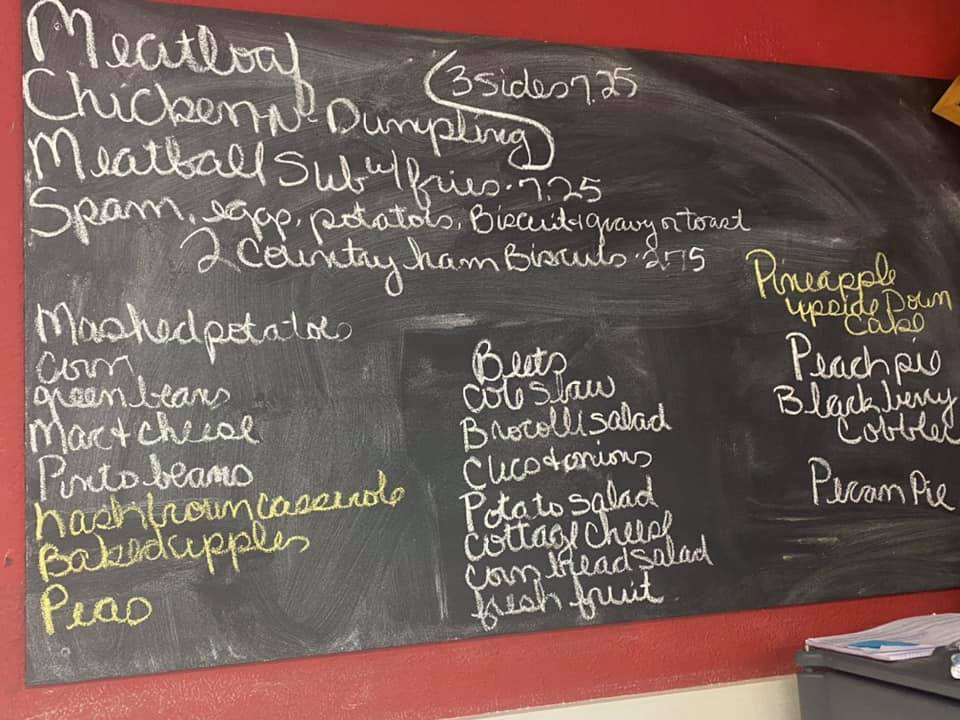 Meatloaf
(3 sides 7.25
Chicken N Dumpling)
Meatball Sub w/ fries . 7.25
Spam, eggs, potatoes, Biscuit + gravy or toast
2 Country ham Biscuits . 2.75
Mashed potatoes
corn
green beans
Mac + cheese
Pinto beans
hashbrown casserole
Baked apples
Peas
Beets
Cole Slaw
Brocolli salad
Cucs + onions
Potato salad
Cottage cheese
corn bread salad
fresh fruit
Pineapple
upside Down
Cake
Peach pie
Blackberry
Cobbler
Pecan Pie